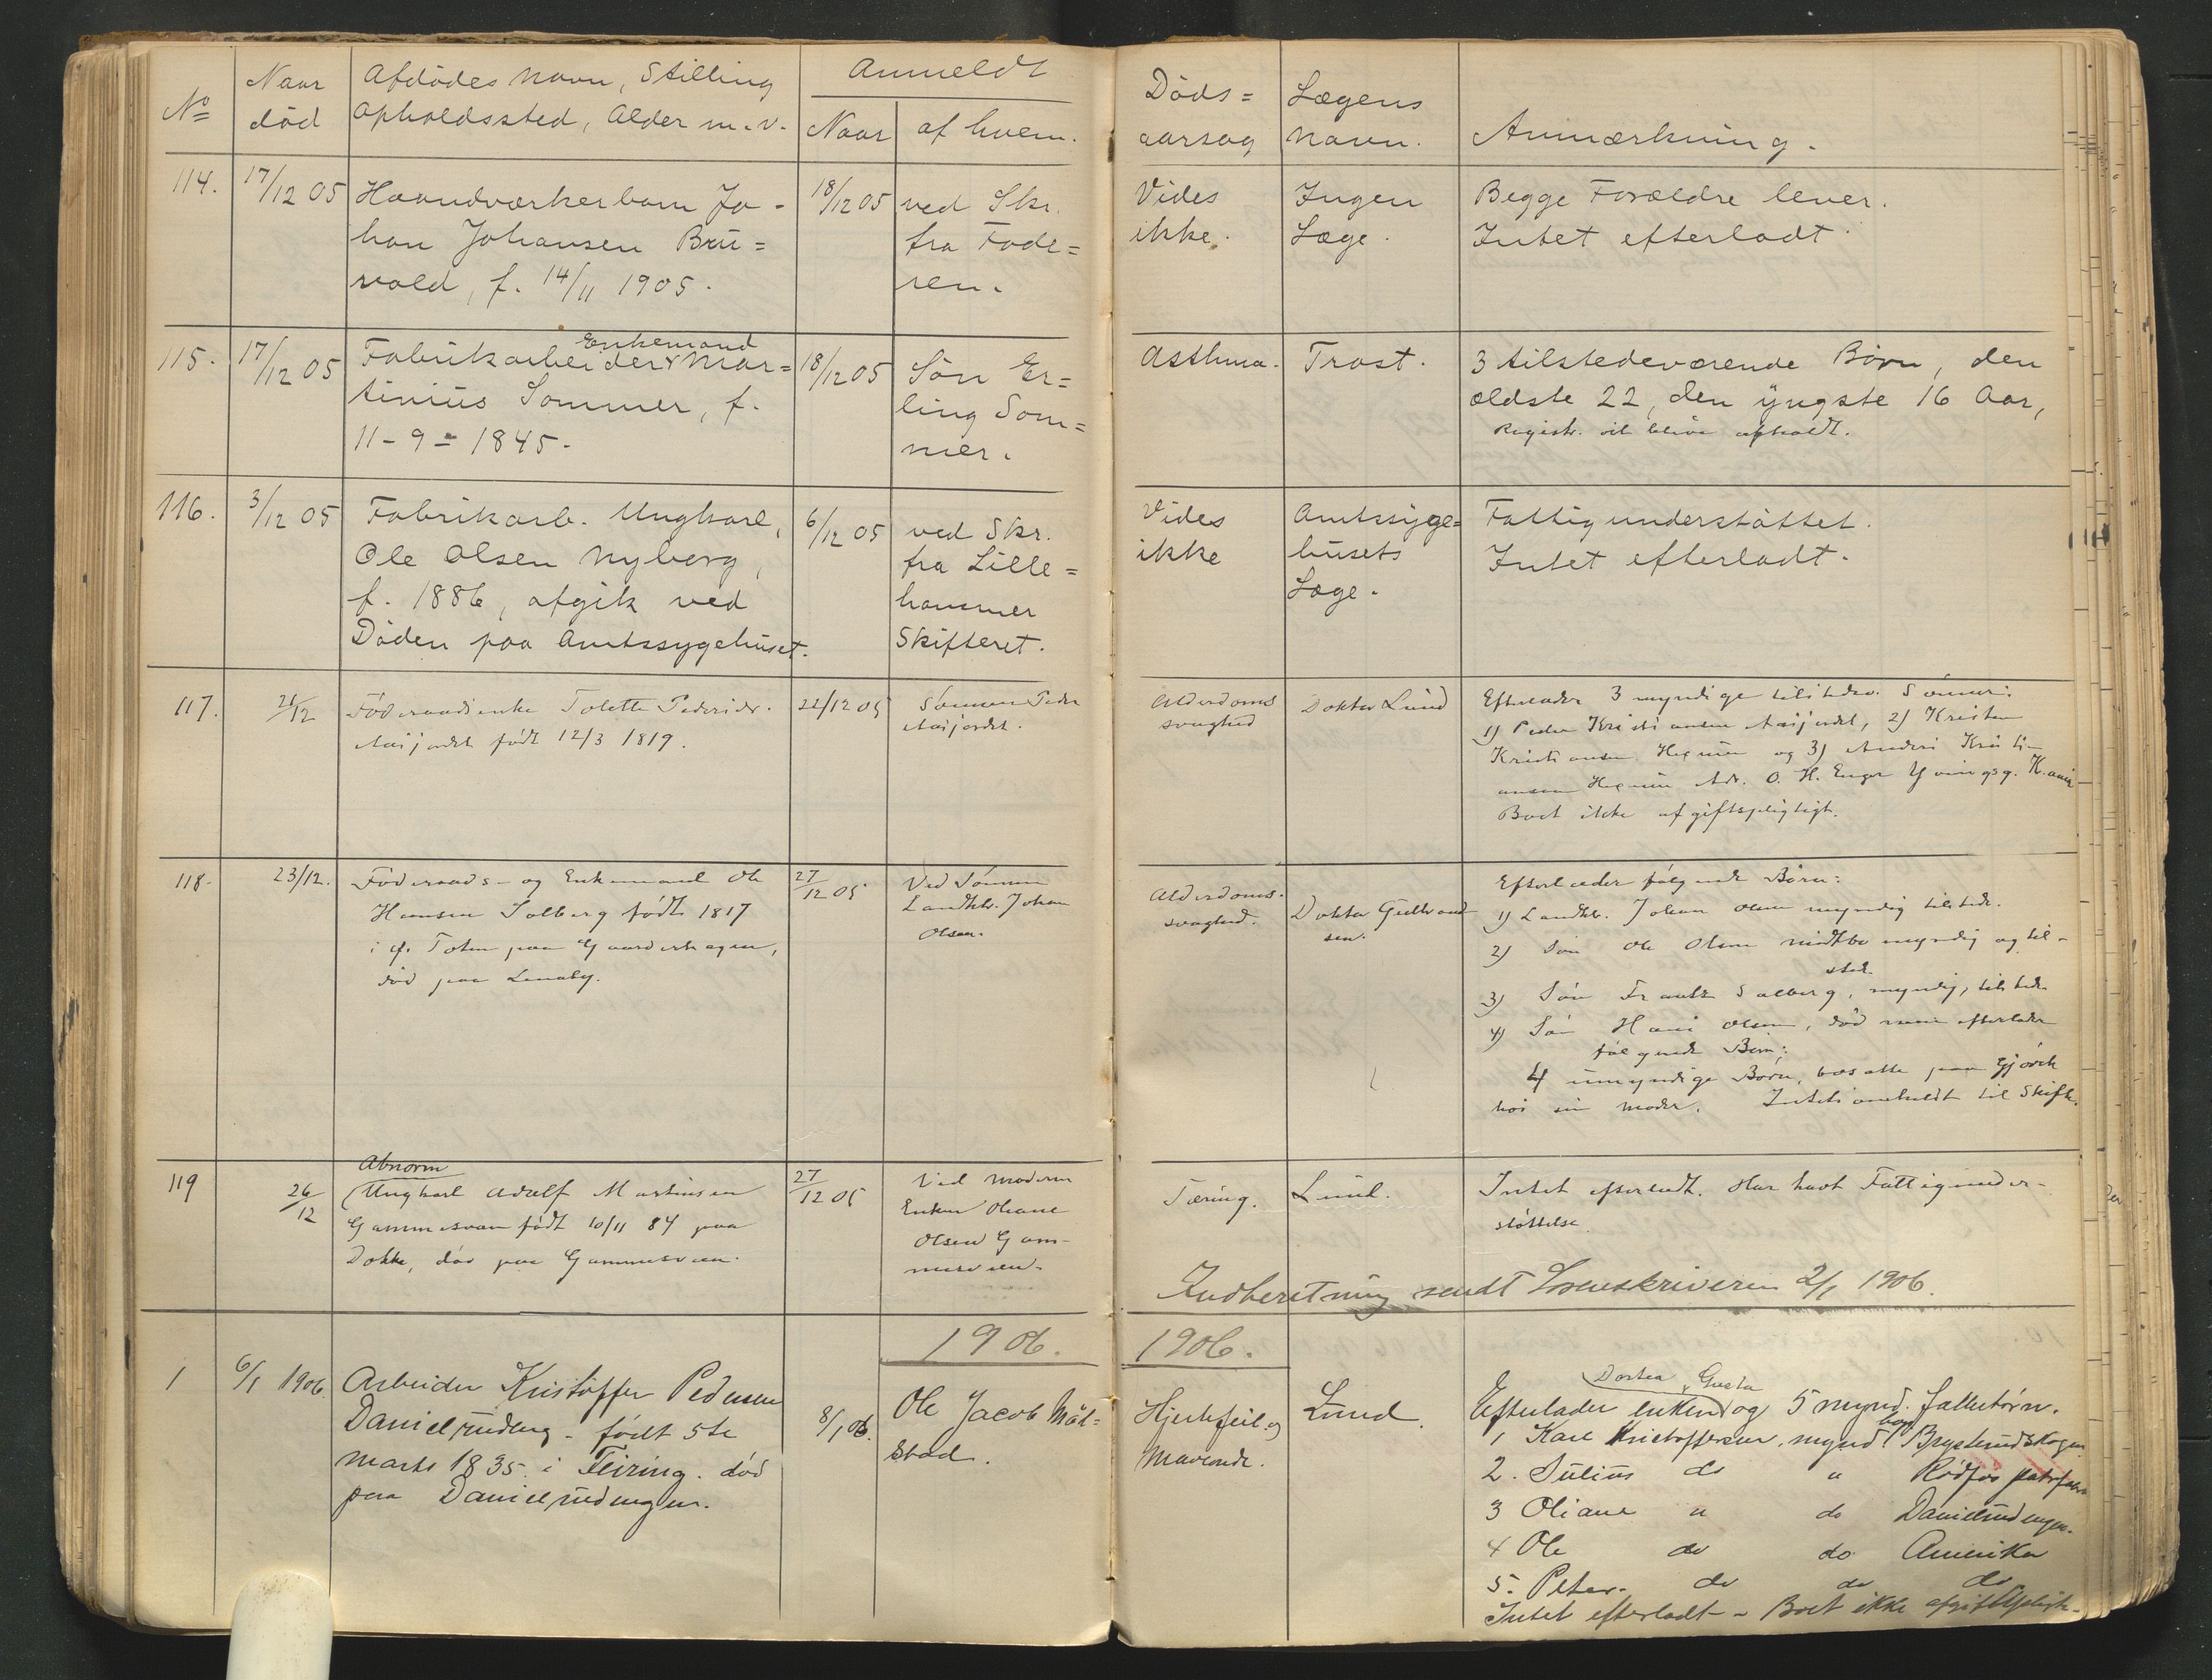 No
Naar
død
Afdødes Navn, Stilling
Opholdssted, Alder m.v.
Anmeldt
Naar
af hvem.
Døds=
aarsag
Lægens
Navn.
Anmærkning.
114.
17/12 05
Haandværkerbarn Jo-
han Johansen Bru=
vold, f. 14/11 1905.
18/12 05
ved Skr.
fra Fade=
ren.
Vides
ikke.
Ingen
Læge.
Begge Forældre lever.
Intet efterladt.
115.
17/12 05
Enkemand
Fabrikarbeider Mar=
tinius Sommer, f.
11-9-1845.
18/12 05
Søn Er=
ling Som=
mer.
Asthma.
Trost.
3 tilstedeværende Børn, den
ældste 22, den yngste 16 Aar,
Registr. vil blive afholdt.
116.
3/12 05
Fabrikarb. Ungkarl,
Ole Olsen Nyborg,
f. 1886, afgik ved
Døden paa Amtssygehuset.
6/12 05
ved Skr.
fra Lille=
hammer
Skifteret.
Vides
ikke
Amtssyge=
husets
Læge.
Fattigunderstøttet.
Intet efterladt.
117.
21/12
Føderaadsenke Tolette Pedersdr.
født 12/3 1819.
22/12 05
Sønnen Peder
Alderdoms
svaghed
Doktor Lund
Efterlader 3 myndige tilstedev. Sønner:
1) Peder Kristiansen 2) Kristian
Kristiansen og 3) Anders Kristi-
ansen Adr. O. H. Enger
Boet ikke afgiftspligtigt.
118.
23/12.
Føderaads- og Enkemand Ole
Hansen Solberg født 1817
i Ø. Toten paa Gaarderhagen,
død paa Lenaby.
27/12 05
Ved Sønnen
Landhdl. Johan
Olsen.
Alderdoms-
svaghed.
Doktor Gulbrand-
sen.
Efterlader følgende Børn:
1) Landhdl. Johan Olsen myndig tilstede.
2) Søn Ole Olsen myndig og til-
sted.
3) Søn Frantz Solberg, myndig, tilstede
4) Søn Hans Olsen, død som efterlader
følgende Børn:
4 umyndige Børn, bosatte paa Gjøvik
hos sin Moder. Intet anmeldt til Skifte.
119
26/12
Abnorm
Ungkarl Adolf Martinsen
Gammesveen født 10/11 84 paa
Dokka, død paa Gammesveen.
27/12 05
Ved Moderen
Enken Oliane
Olsen Gam-
mesveen.
Tæring.
Lund.
Intet efterladt. Har havt Fattigunder-
støttelse.
Indberetning sendt Sorenskriveren 2/1 1906.
1906.
1906.
1
6/1 1906.
Arbeider Kristoffer Pedersen
Danielrudeng. født 5te
marts 1835 i Feiring. død
paa Danielrudengen.
8/1 06.
Ole Jacob Møl=
stad.
Hjertefeil og
Maveonde.
Lund.
Dortea Gusta
Efterlader enken og 5 mynd. fællesbørn.
1 Karl Kristoffersen, mynd. bop. Brystrudskogen
2. Julius do " Rødfos patronfabr.
3 Oliane " do Danielrudengen.
4 Ole do do Amerika
5. Peter. do do do
Intet efterladt - Boet ikke afgiftspligtig.